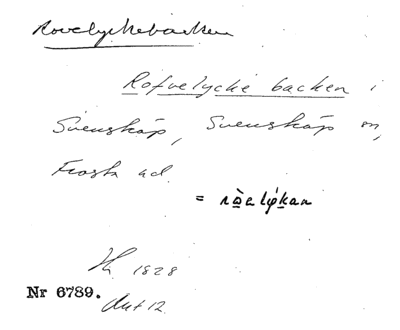 Rovelyckebacken
Rofvelycke backen i
Svenskåp, Svenskåp sn,
Frosta hd.
= 
1828
Nr 6789.
Akt 12